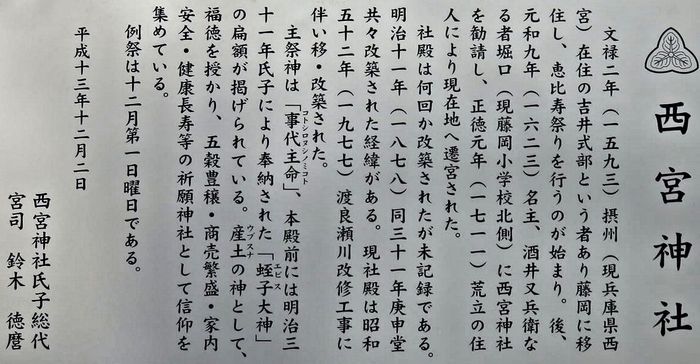 西宮神社
文禄二年(一五九三)摂州(現兵庫県西
宮)在住の吉井式部という者あり藤岡に移
住し、恵比寿祭りを行うのが始まり。後、
元和九年(一六二三)名主、酒井又兵衛な
る者堀口(現藤岡小学校北側)に西宮神社
を勧請し、正徳元年(一七一一)荒立の住
人により現在地へ遷宮された。
社殿は何回か改築されたが未記録である。
明治十一年(一八七八)同三十一年庚申堂
共々改築された経緯がある。現社殿は昭和
五十二年(一九七七)渡良瀬川改修工事に
伴い移・改築された。
主祭神は「事代主命」、本殿前には明治三
コトシロヌシノミコト
十一年氏子により奉納された「蛭子大神」
エビス
の扁額が掲げられている。産土の神として、
ウブスナ
福徳を授かり、五穀豊穣・商売繁盛・家内
安全・健康長寿等の祈願神社として信仰を
集めている。
例祭は十二月第一日曜日である。
平成十三年十二月二日
西宮神社氏子総代
宮司 鈴木 徳麿